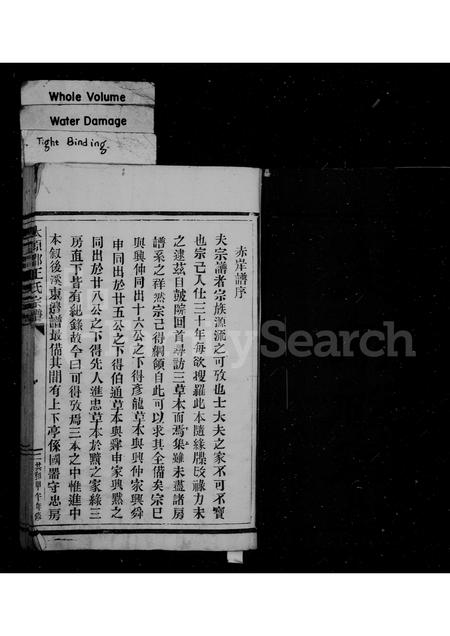 Whole Volume
Water Damage
Tight Binding
赤岸譜序
夫宗譜者宗族源流之可攷也士大夫之家不可不寶
也宗己人仕三十年每欲搜羅此本隨緣牒攺祿力未
之逮茲自皷院回首尋訪三草本而焉集雖未盡諸房
譜系之祥然宗己得綱領自此可以求其全備矣宗己
與興仲同出於十六公之下得彥龍草本與興仲家興舜
申同出於廿五公之下得伯通草本與舜申家興黙之
同出於廿八公之下得先人進忠草本於黙之家緣三
房直下皆有紀錄故今日可得攷焉三本之中惟進中
本叙後溪東塘譜最俻其間有上下亭係國器守忠房
太原郡王氏宗譜
FamilySearch